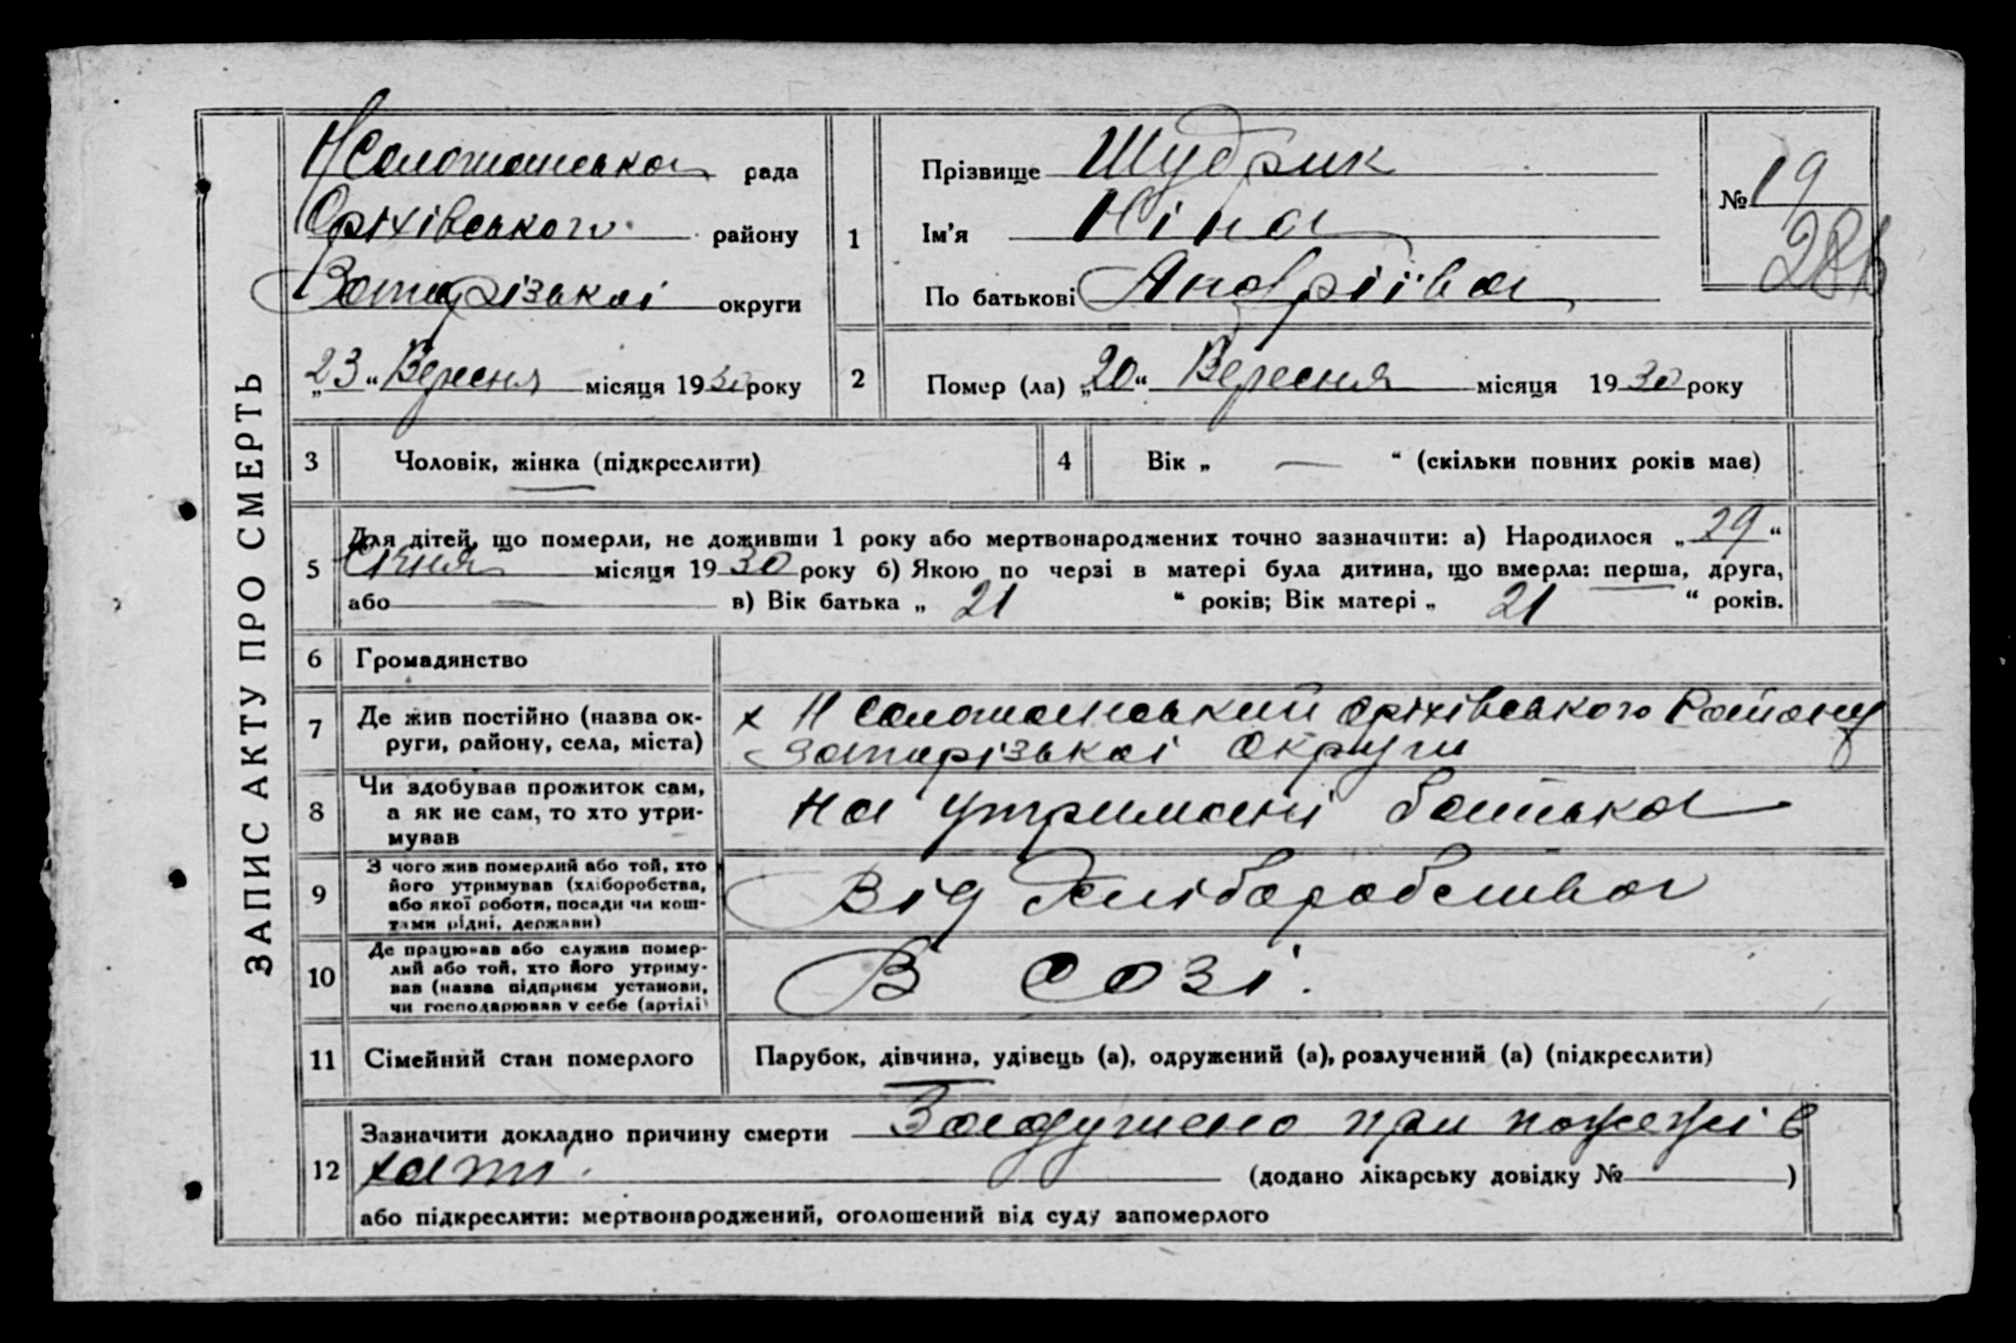 ЗАПИС АКТУ ПРО СМЕРТЬ
рада
Оріхівського району
округи
„23“ Вересня місяця 1930 року
1
Прізвище Шудрик
Ім'я Ніна
По батькові Андріївна
№ 19
286
2
Помер (ла) „20“ Вересня місяця 1930 року
3 Чоловік, жінка (підкреслити)
4 Вік „ — “ (скільки повних років має)
5 Для дітей, що померли, не доживши 1 року або мертвонароджених точно зазначити: а) Народилося „29“
Січня місяця 1930 року б) Якою по черзі в матері була дитина, що вмерла: перша, друга,
або — в) Вік батька „ 21 “ років; Вік матері „ 21 “ років.
6 Громадянство
7 Де жив постійно (назва ок-
руги, району, села, міста)
х Н Солошанський Оріхівського Району
Запарізькоі Округи
8 Чи здобував прожиток сам,
а як не сам, то хто утри-
мував
на утримані батька
9 З чого жив померлий або той, хто
його утримував (хліборобства,
або якої роботи, посади чи кош-
тами рідні, держави)
Від Хліборобства
10 Де працював або служив помер-
лий або той, хто його утриму-
вав (назва підприєм установи,
чи господарював у себе (артілі)
В созі.
11 Сімейний стан померлого
Парубок, дівчина, удівець (а), одружений (а), розлучений (а) (підкреслити)
12 Зазначити докладно причину смерти Задушено при пожежі в
хаті. (додано лікарську довідку № )
або підкреслити: мертвонароджений, оголошений від суду запомерлого